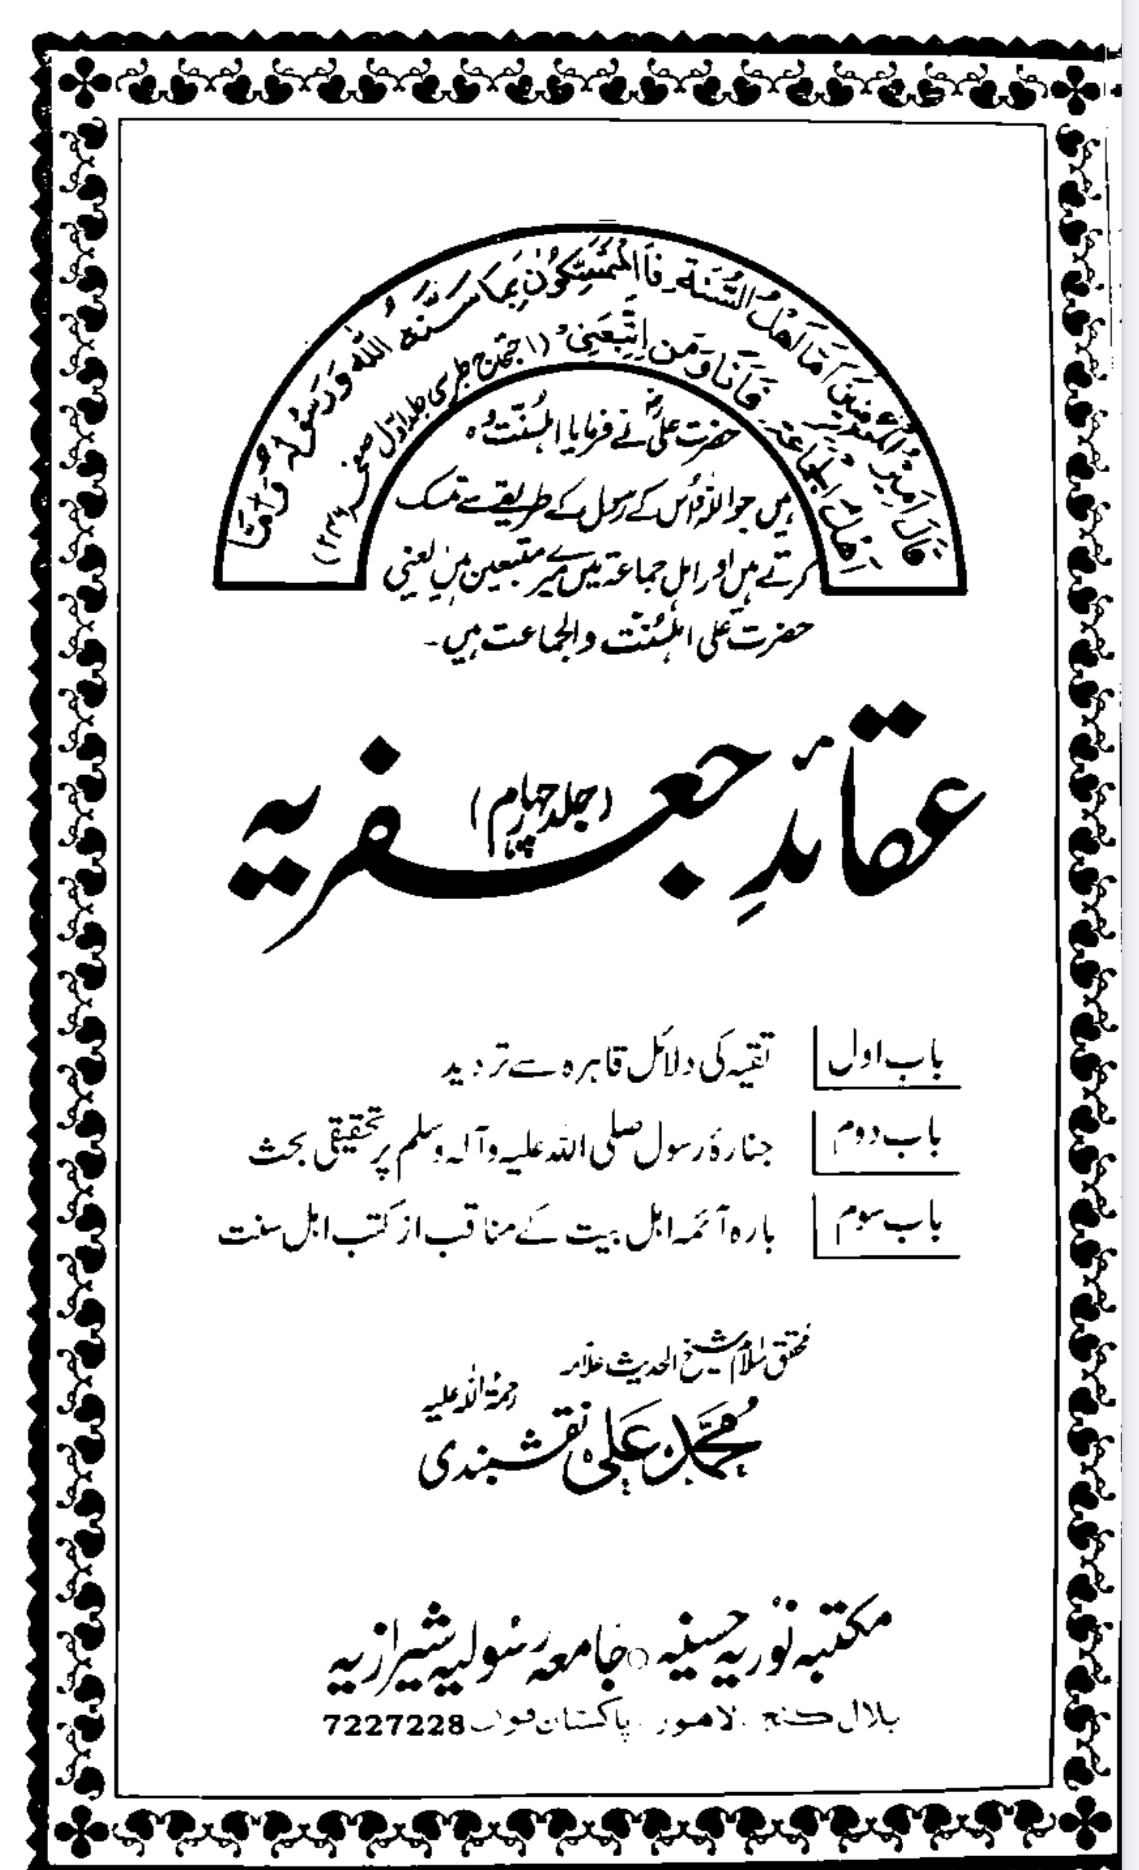 قَالَ اَمِيْرُ الْمُؤْمِنِيْنَ اَمَّا اَهْلُ السُّنَّةِ فَاَالْمُتَمَسِّكُوْنَ بِمَا سَنَّهُ اللّٰهُ وَرَسُوْلُهُ وَاَمَّا
اَهْلُ الْجَمَاعَةِ فَاَنَا وَمَنِ اتَّبَعَنِيْ (احتجاج طبرسی جلد اول صفحہ
حضرت علی نے فرمایا اہلسُنّت وُہ
ہیں جو اللہ اور اُس کے رسول کے طریقے سے تمسک
کرتے ہیں اور اہل جماعۃ میں میرے متبعین ہیں یعنی
حضرت علی اہلسُنّت والجماعت ہیں۔
عقائدِ جعفریہ
(جلد چہارم)
باب اول تقیہ کی دلائل قاہرہ سے تردید
باب دوم جنازۂ رسول صلی اللہ علیہ وآلہ وسلم پر تحقیقی بحث
باب سوم بارہ آئمہ اہل بیت کے مناقب از کتب اہل سنت
محقق اسلام شیخ الحدیث علامہ
محمد علی نقشبندی رحمۃ اللہ علیہ
مکتبہ نوریہ حسنیہ ○ جامعہ رسولیہ شیرازیہ
بلال گنج ۔ لاہور ۔ پاکستان فون 7227228